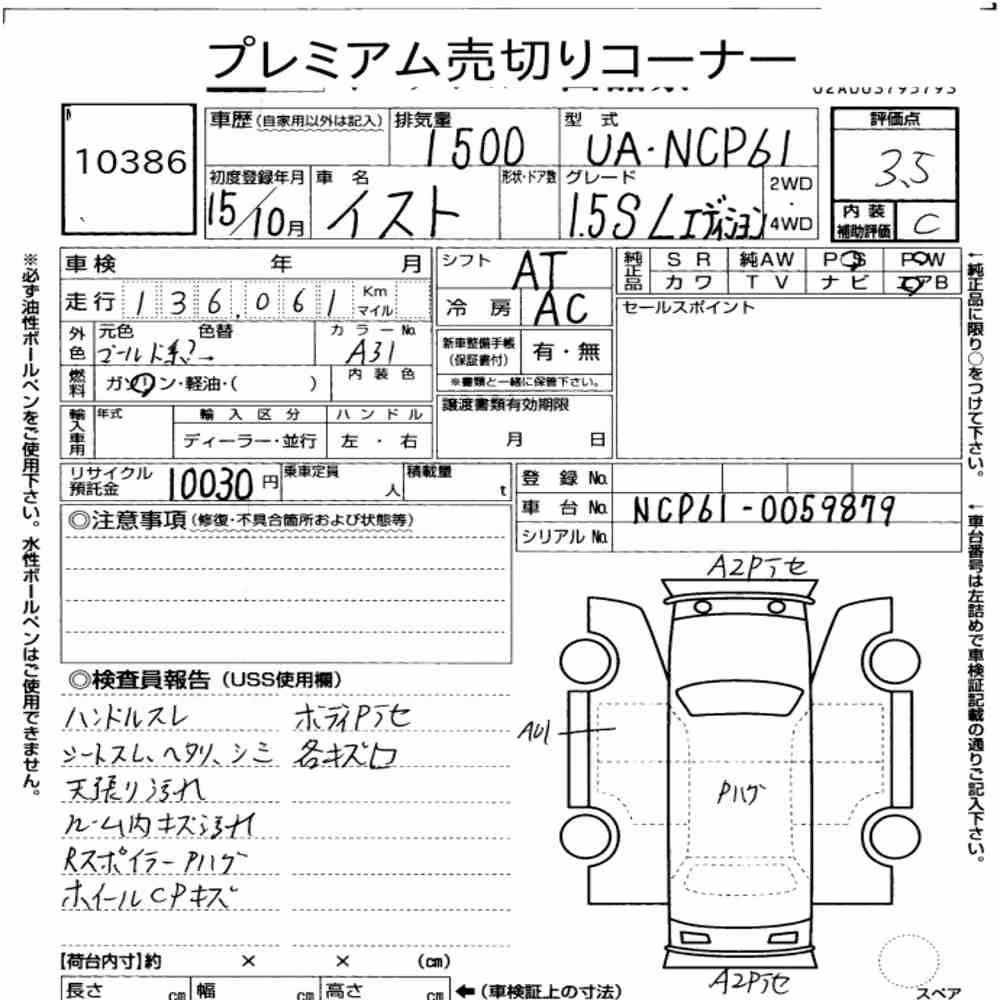 プレミアム売切りコーナー
10386
車歴 (自家用以外は記入)
排気量
1500
型 式
UA・NCP61
評価点
3.5
内 装
補助評価
C
初度登録年月
15/10月
車 名
イスト
形状・ドア数
グレード
1.5S Lエディション
2WD
・
4WD
車 検 年 月
走行 136,061 Km
マイル
シフト
AT
冷 房
AC
純正品
S R 純AW P S P W
カワ T V ナビ エアB
セールスポイント
外色
元色 色替
ゴールド系?→
カラーNo.
A31
新車整備手帳
(保証書付)
有・無
※書類と一緒に保管下さい。
燃料
ガソリン・軽油・( )
内 装 色
譲渡書類有効期限
月 日
輸入車用
年式
輸 入 区 分
ディーラー・並行
ハ ン ド ル
左 ・ 右
リサイクル
預託金
10030 円
乗車定員
人
積載量
t
登 録 No.
車 台 No.
NCP61-0059879
シリアル No.
◎注意事項 (修復・不具合箇所および状態等)
◎検査員報告 (USS使用欄)
ハンドルスレ
シートスレ、ヘタリ、シミ
天張り汚れ
ルーム内キズ汚れ
Rスポイラー Pハゲ
ホイールCPキズ
ボディPテセ
各キズ凹
A2Pテセ
AU1
Pハゲ
A2Pテセ
スペア
【荷台内寸】約 × × (cm)
長さ cm 幅 cm 高さ cm ←(車検証上の寸法)
※必ず油性ボールペンをご使用下さい。水性ボールペンはご使用できません。
←純正品に限り○をつけて下さい。
←車台番号は左詰めで車検証記載の通りご記入下さい。